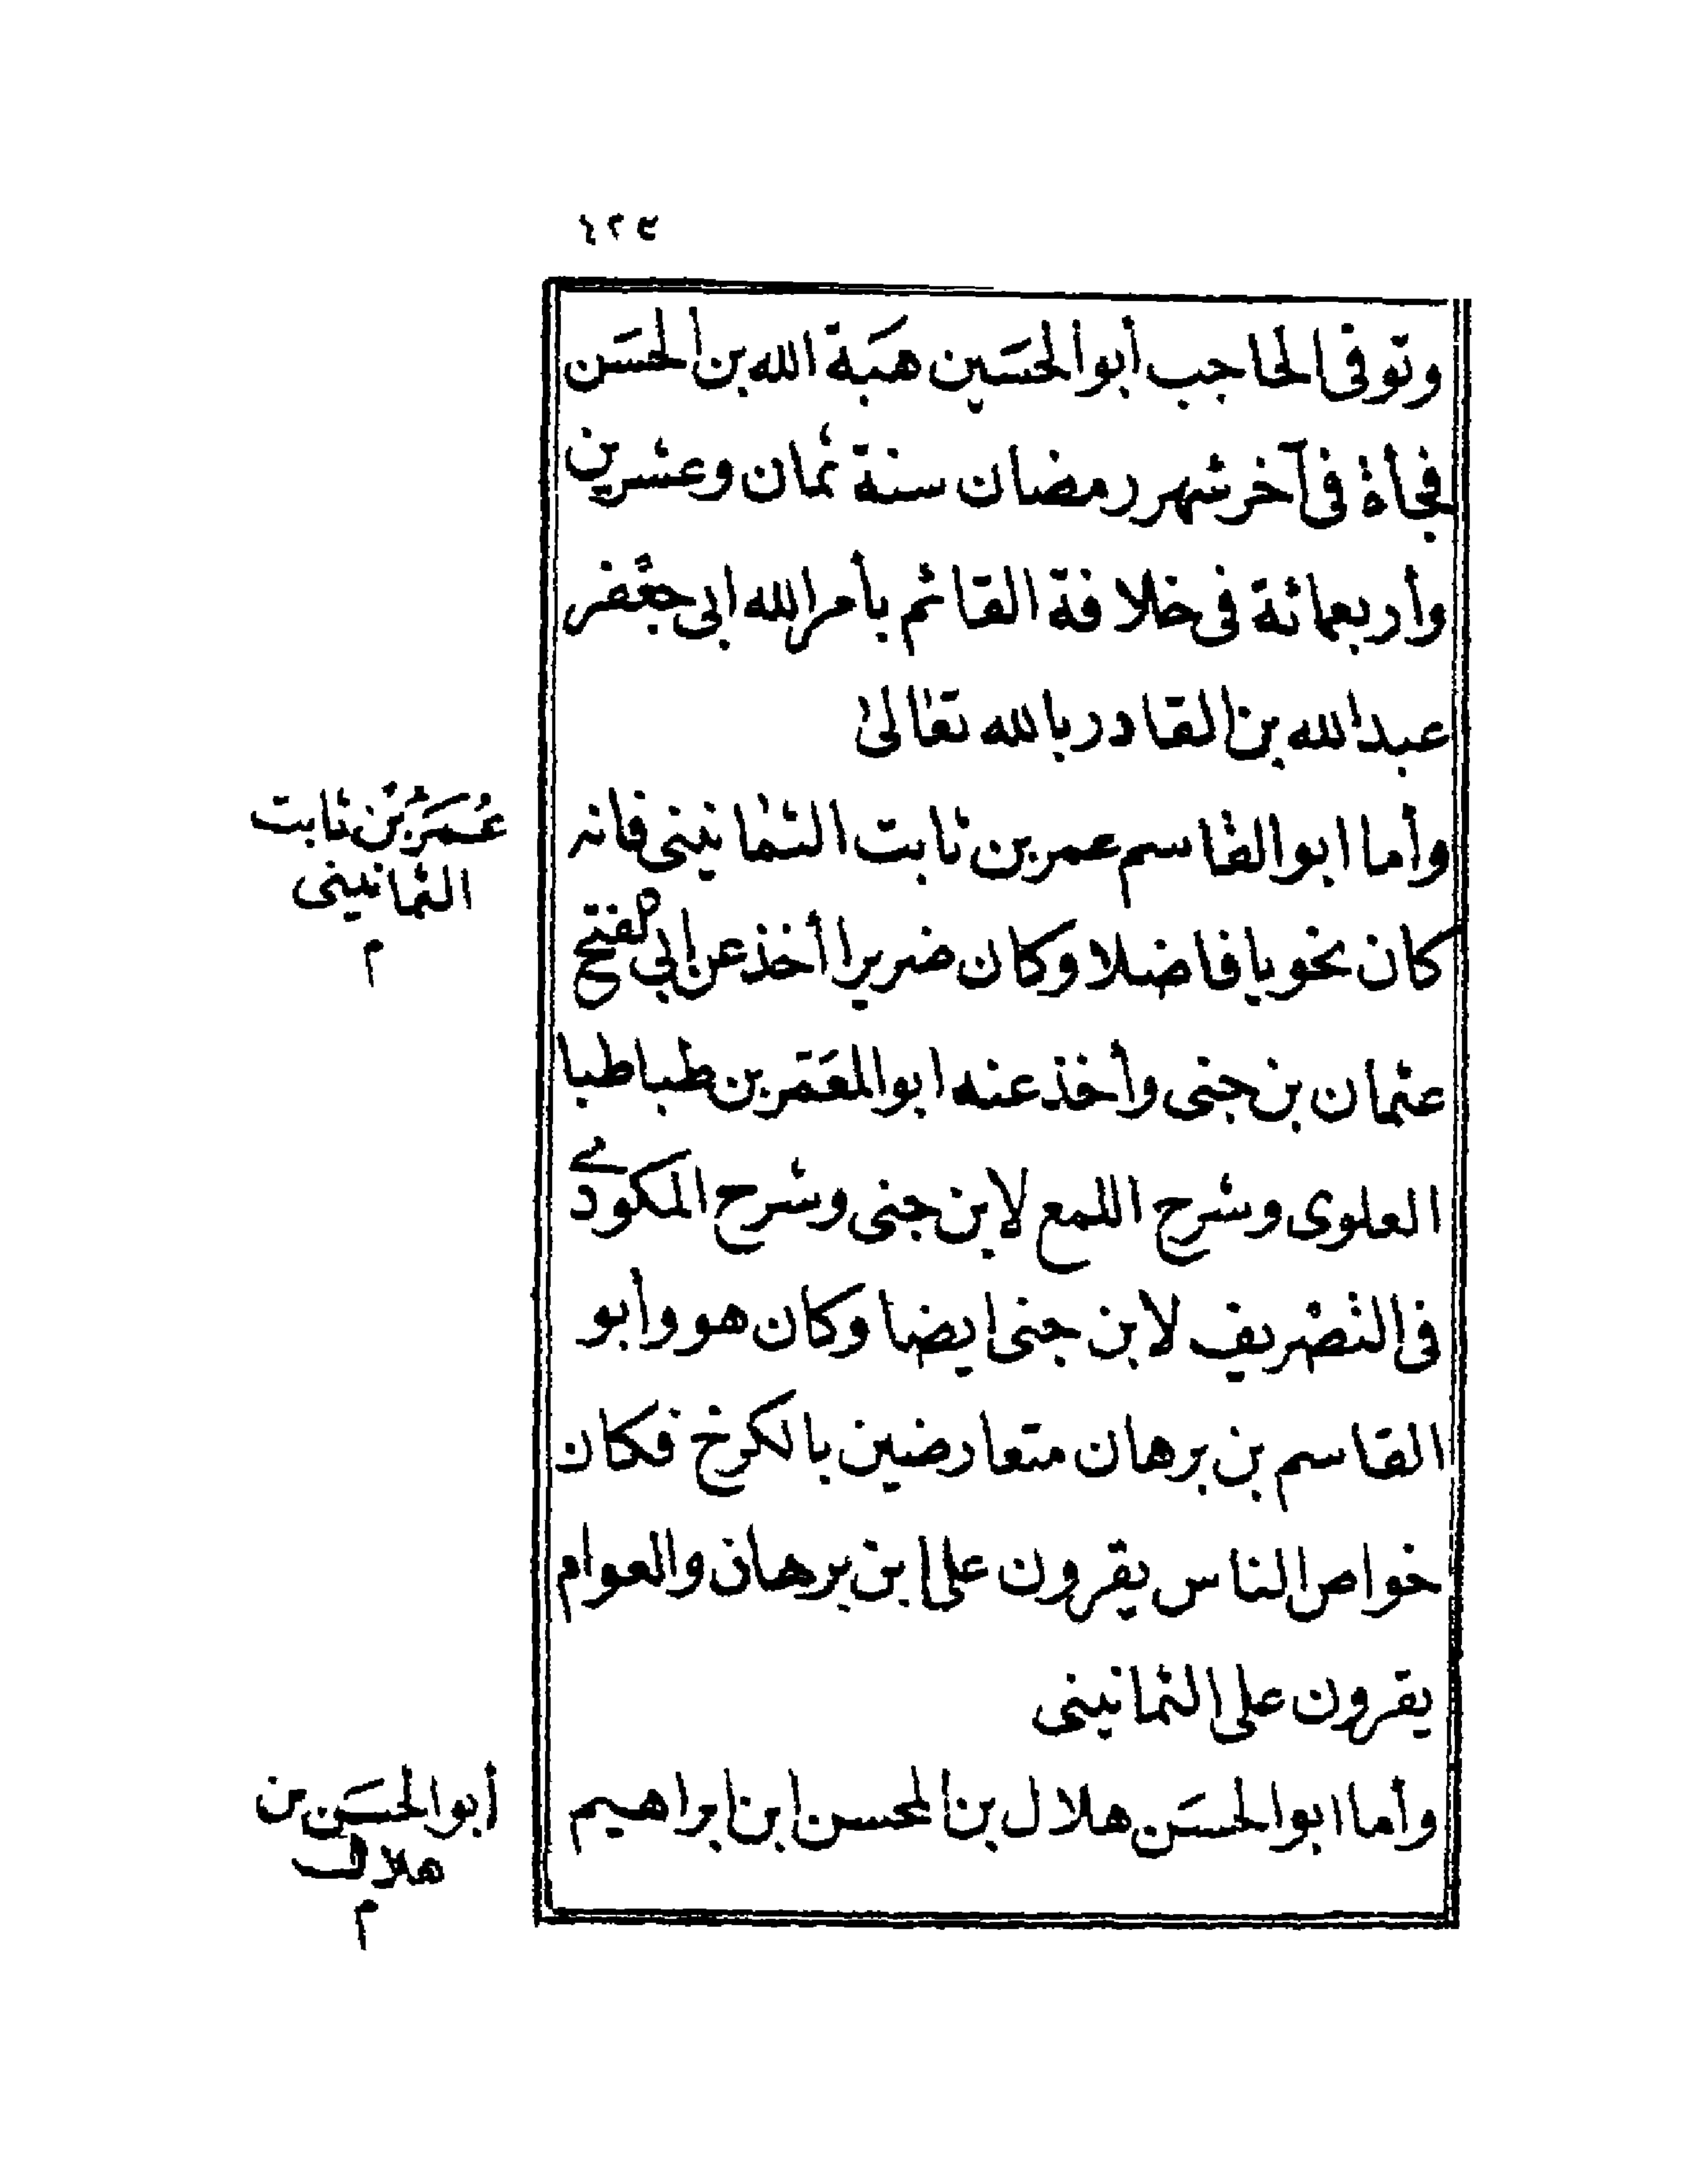 ٤٢٤
وتوفى الحاجب أبو الحسَين هبَة الله بن الحسَن
فجأة فى آخر شهر رمضان سنة ثمان وعشرين
وأربعمائة فى خلافة القائم بأمر الله ابى جعفر
عبد الله بن القادر بالله تعالى
عُمَرُ بْنُ ثابت
الثمانينى
م
وأما ابو القاسم عمر بن ثابت الثمانينى فانه
كان نحويا فاضلا وكان ضريرا أخذ عن ابي الفتح
عثمان بن جنى وأخذ عنه ابو المعَمّر بن طباطبا
العلوى وشرح اللمع لابن جنى وشرح المكودي
فى التصريف لابن جنى ايضا وكان هو وأبو
القاسم بن برهان متعارضين بالكرخ فكان
خواص الناس يقرون على ابن برهان والعوام
يقرون على الثمانينى
أبو الحسَن بن
هلال
م
وأما ابو الحسَن هلال بن المحسن ابن ابراهيم